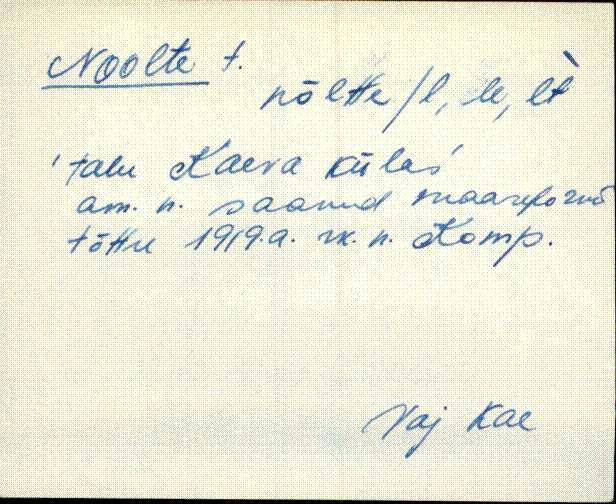 Noolte t.
nõltte /l, le, lt̀
'talu Kaeva külas'
am. n. saanud maareformi
tõttu 1919.a. rk. n. Komp.
Vaj Kae